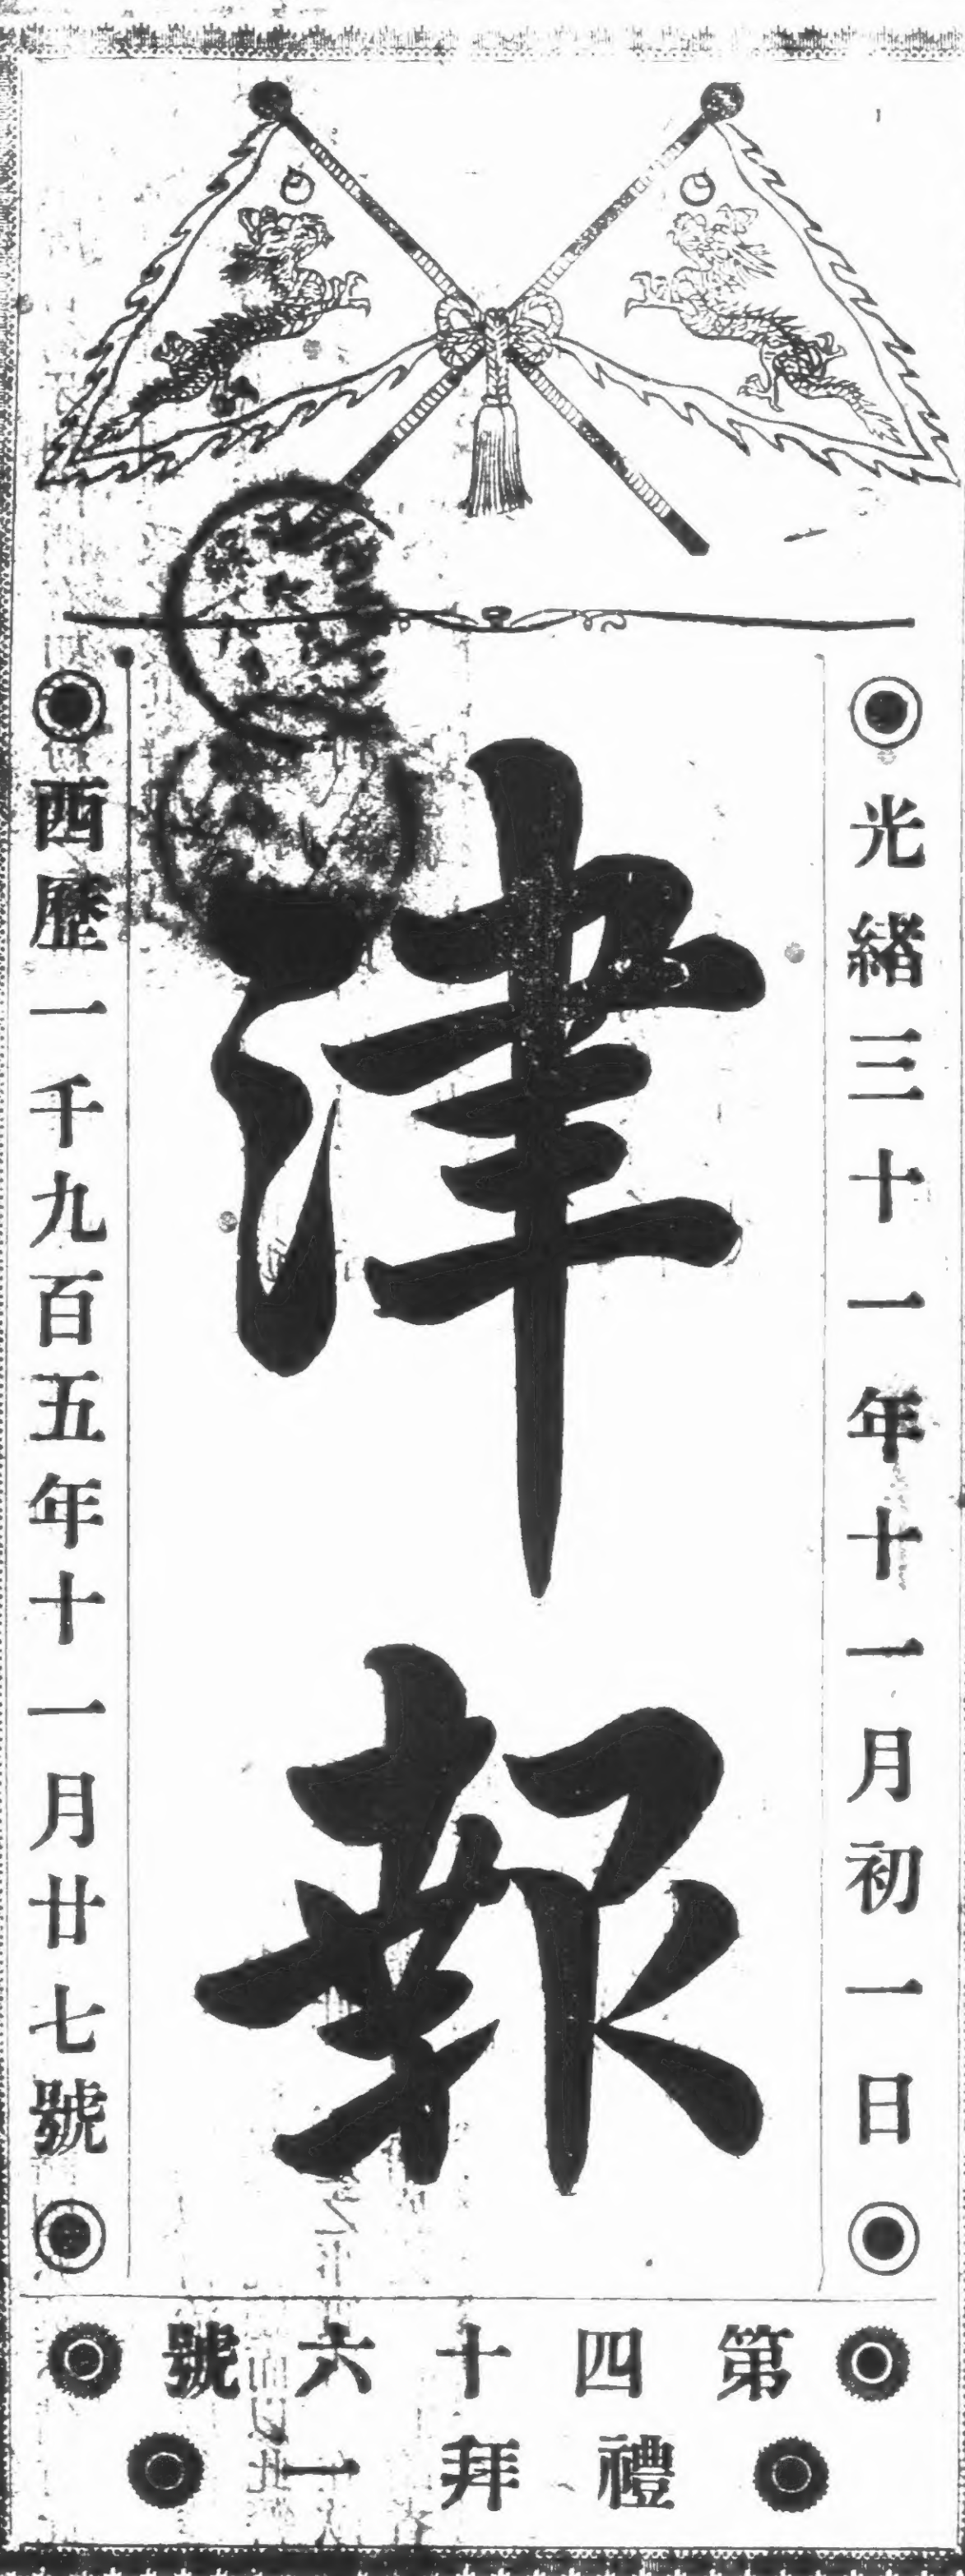 光緒三十一年十一月初一日
津報
西歷一千九百五年十一月廿七號
第四十六號
禮拜一